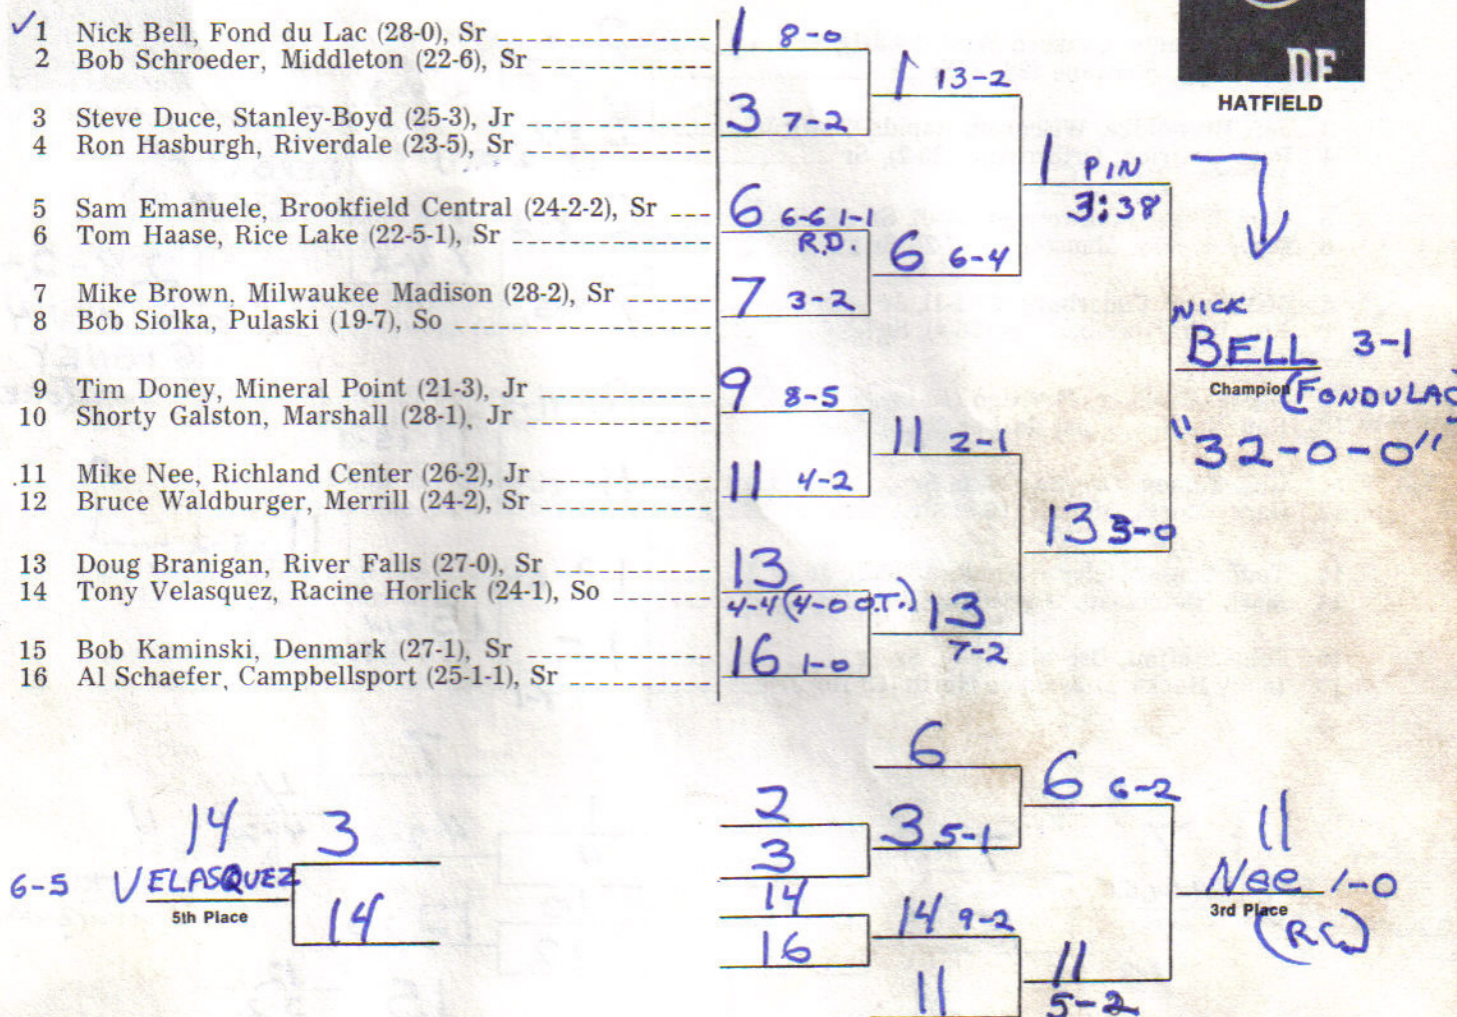 DE
HATFIELD
✓ 1 Nick Bell, Fond du Lac (28-0), Sr
2 Bob Schroeder, Middleton (22-6), Sr
3 Steve Duce, Stanley-Boyd (25-3), Jr
4 Ron Hasburgh, Riverdale (23-5), Sr
5 Sam Emanuele, Brookfield Central (24-2-2), Sr
6 Tom Haase, Rice Lake (22-5-1), Sr
7 Mike Brown, Milwaukee Madison (28-2), Sr
8 Bob Siolka, Pulaski (19-7), So
9 Tim Doney, Mineral Point (21-3), Jr
10 Shorty Galston, Marshall (28-1), Jr
11 Mike Nee, Richland Center (26-2), Jr
12 Bruce Waldburger, Merrill (24-2), Sr
13 Doug Branigan, River Falls (27-0), Sr
14 Tony Velasquez, Racine Horlick (24-1), So
15 Bob Kaminski, Denmark (27-1), Sr
16 Al Schaefer, Campbellsport (25-1-1), Sr
1 8-0
3 7-2
6 6-6 1-1
R.D.
7 3-2
9 8-5
11 4-2
13
4-4 (4-0 O.T.)
16 1-0
1 13-2
6 6-4
11 2-1
13
7-2
1 PIN
3:38
13 3-0
NICK
BELL 3-1
Champion (FONDULAC)
"32-0-0"
14
6-5 VELASQUEZ
5th Place
3
14
2
3
14
16
6
3 5-1
14 9-2
11
6 6-2
11
5-2
11
Nee 1-0
3rd Place
(RC)